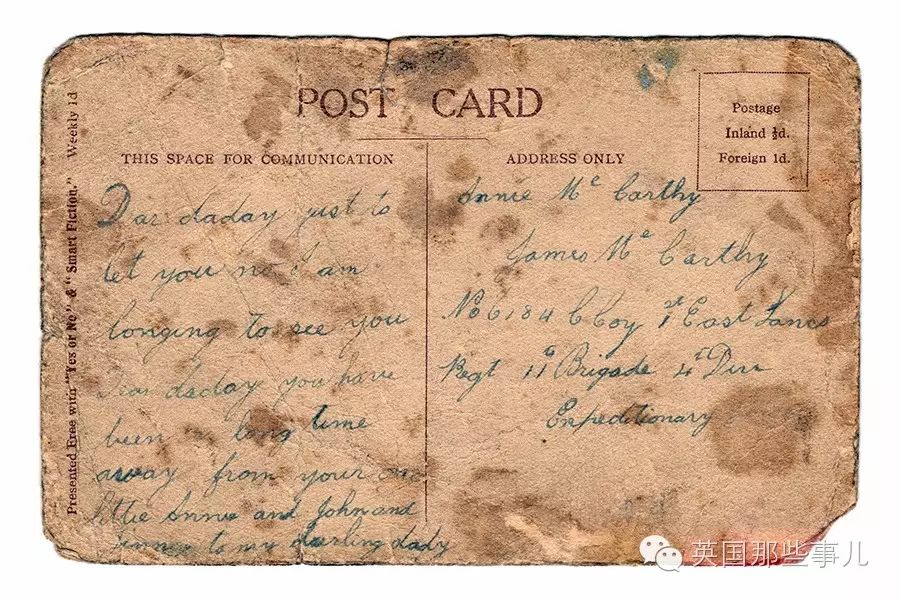 POST CARD
Postage
Inland ½d.
Foreign 1d.
THIS SPACE FOR COMMUNICATION
Dar daday just to
let you no I am
longing to see you
Dear daday you have
been a long time
away from your
little Annie and John and
to my darling dady
ADDRESS ONLY
Annie Mc Carthy
James Mc Carthy
No 6184 C Coy 1st East Lancs
Regt 11 Brigade 4th Divn
Expeditionary
Presented Free with "Yes or No" & "Smart Fiction." Weekly 1d
英国那些事儿